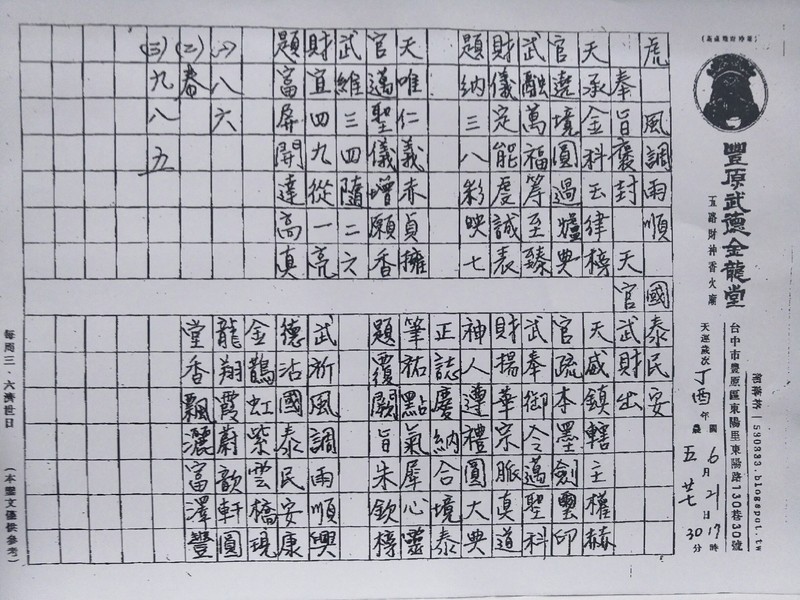 豐原武德金龍堂
五路財神香火廟
台中市豐原區東陽里東陽路130巷30號
530333.blogspot.tw
天運歲次丁酉年
國 6月21日17時
農 五 廿七 30分
虎 風調雨順 國泰民安
奉旨褒封 天官武財出
天承金科玉律榜
官遶境圓過爐典
武融萬福籌至臻
財儀定能虔誠表
題納三八彩映七
天唯仁義赤貞擁
官邁聖儀增願香
武維三四隨二六
財宜四九從一亮
題富屏開達高真
(一)八六
(二)春
(三)九八五
天威鎮轄主權赫
官疏本墨劍璽印
武奉御令邁聖科
財揚華宗脈真道
神人遵禮圓大典
正誌慶納合境泰
筆祐點氣犀心靈
題覆闕旨朱欽榜
武祈風調雨順興
德沾國泰民安康
金鵲虹紫雲橋現
龍翔霞蔚歆軒圓
堂香飄灑富澤豐
每周三、六濟世日
(本聖文僅供參考)